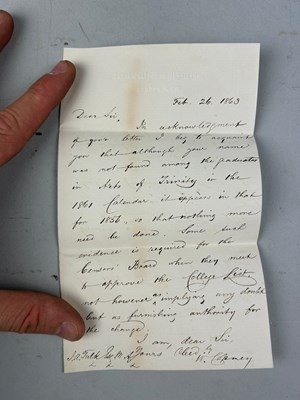 Feb. 26. 1863
Dear Sir,
In acknowledgment
of your letter I beg to acquaint
you that although your name
was not found among the graduates
in Arts of Trinity in the
1861 Calendar it appears in that
for 1856. so that nothing more
need be done. Some such
evidence is required for the
Censors' Board when they meet
to approve the College List
not however as implying any doubt
but as furnishing authority for
the change.
I am, dear Sir,
Yours